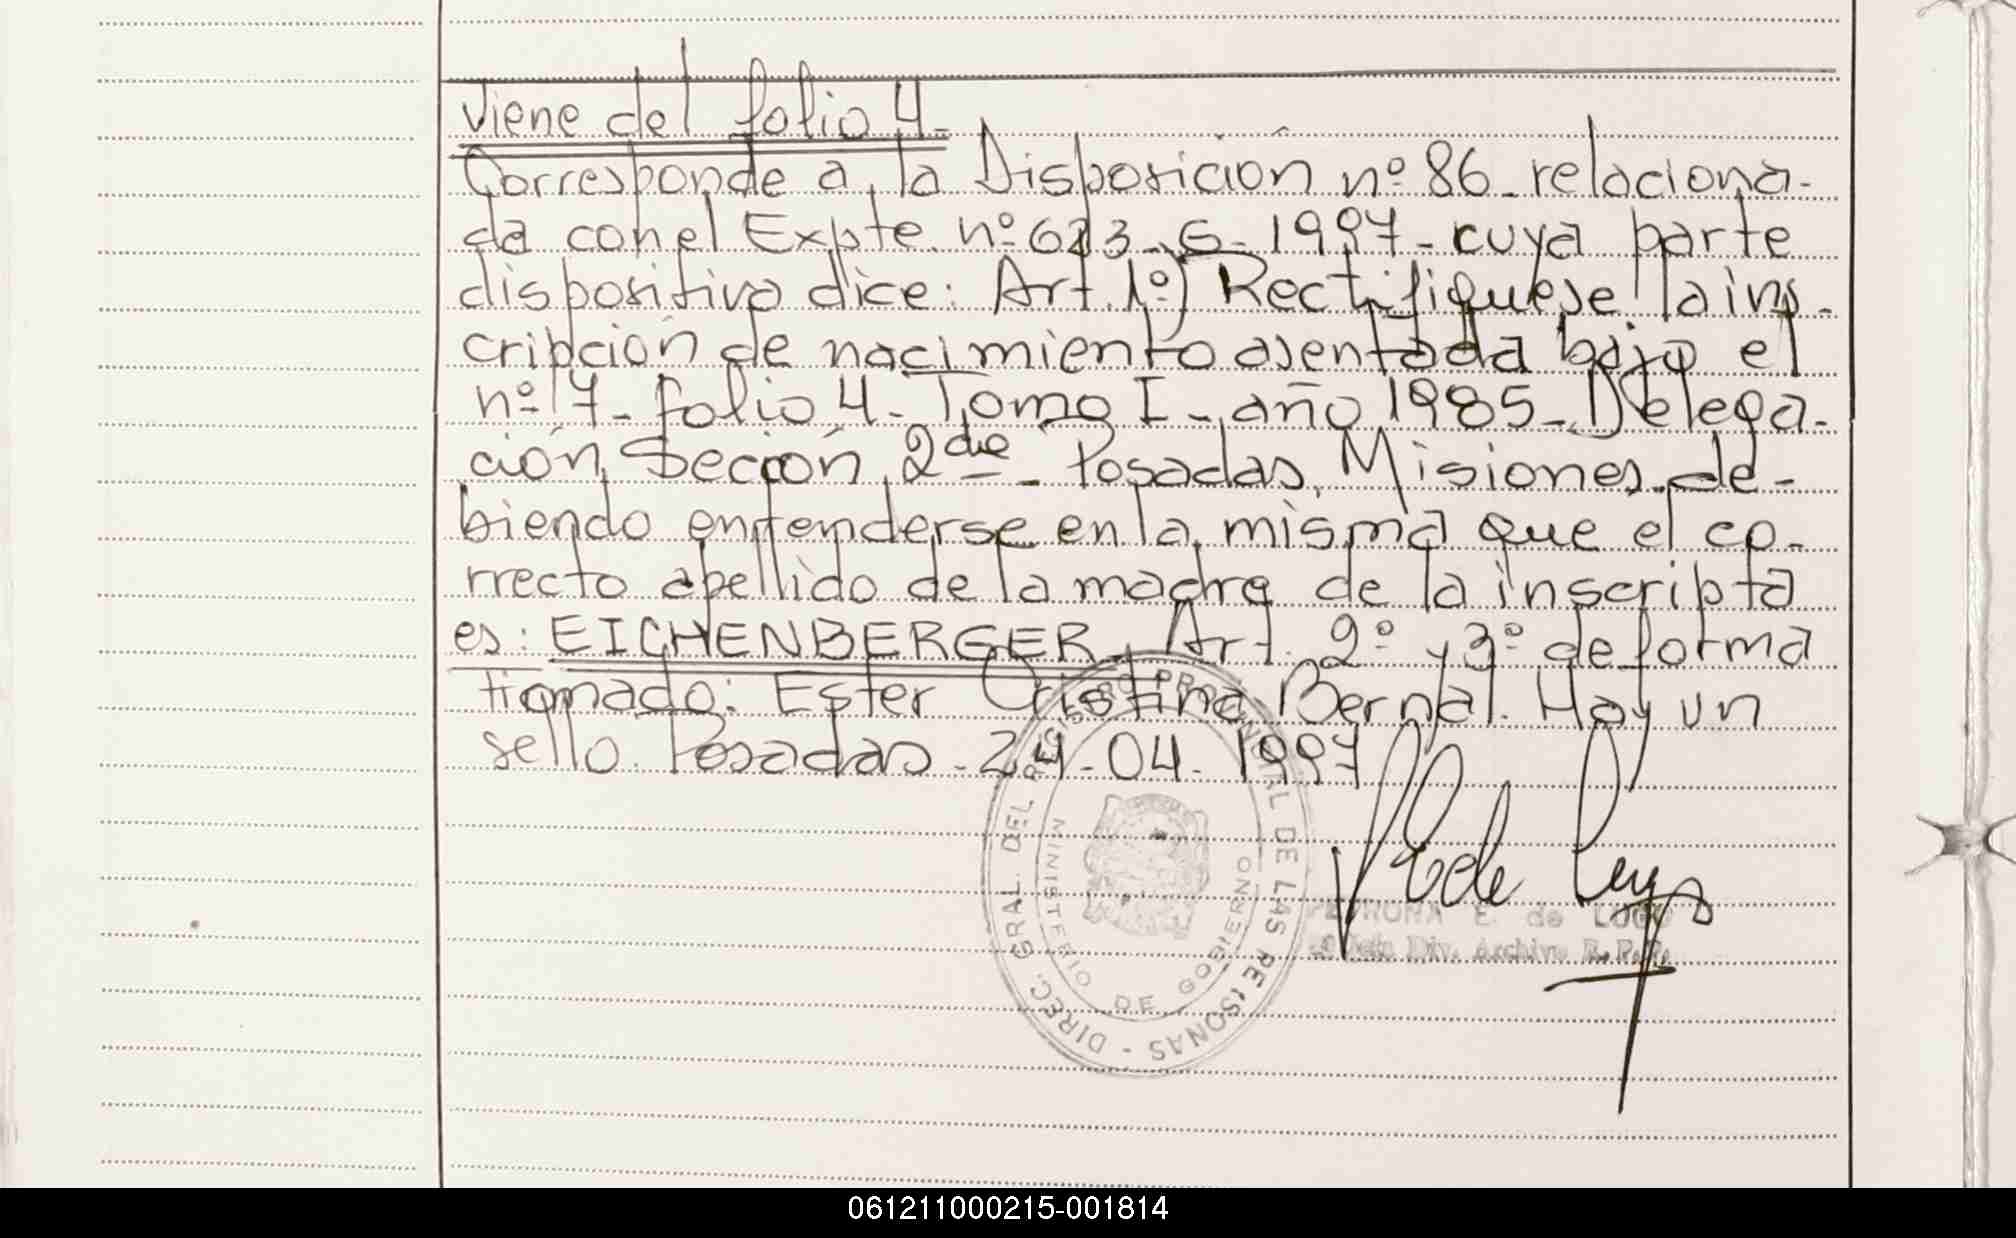 Viene del folio 4-
Corresponde a la Disposición nº 86 - relaciona-
da con el Expte. nº 623-G-1997- cuya parte
dispositiva dice: Art. 1º) Rectifíquese la ins-
cripción de nacimiento asentada bajo el
nº 17- folio 4- Tomo I - año 1985- Delega-
ción Sección 2da - Posadas, Misiones- de-
biendo entenderse en la misma que el co-
rrecto apellido de la madre de la inscripta
es: EICHENBERGER. Art. 2º y 3º de forma
firmado: Ester Cristina Bernal. Hay un
sello. Posadas - 24-04-1997
DIREC. GRAL. DEL REGISTRO PROVINCIAL DE LAS PERSONAS -
MINISTERIO DE GOBIERNO
PETRONA E. de LUGO
Div. Archivo R.P.P.
061211000215-001814